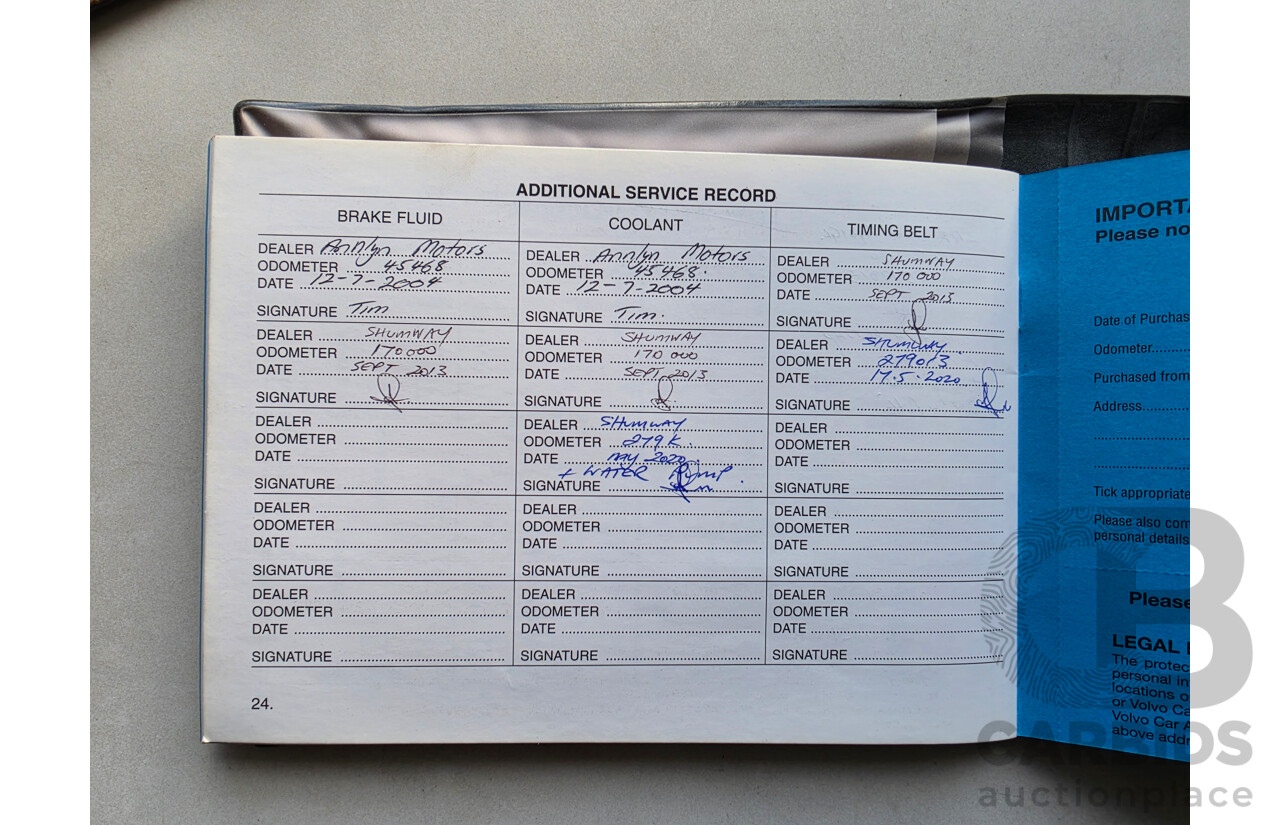 ADDITIONAL SERVICE RECORD
BRAKE FLUID
DEALER Annlyn Motors
ODOMETER 45468
DATE 12-7-2004
SIGNATURE Tim
DEALER SHUMWAY
ODOMETER 170000
DATE SEPT 2013
SIGNATURE
DEALER
ODOMETER
DATE
SIGNATURE
DEALER
ODOMETER
DATE
SIGNATURE
DEALER
ODOMETER
DATE
SIGNATURE
COOLANT
DEALER Annlyn Motors
ODOMETER 45468.
DATE 12-7-2004
SIGNATURE Tim.
DEALER SHUMWAY
ODOMETER 170 000
DATE SEPT 2013
SIGNATURE
DEALER SHUMWAY
ODOMETER 279 K.
DATE MAY 2020.
+ WATER PUMP.
SIGNATURE
DEALER
ODOMETER
DATE
SIGNATURE
DEALER
ODOMETER
DATE
SIGNATURE
TIMING BELT
DEALER SHUMWAY
ODOMETER 170 000
DATE SEPT 2013
SIGNATURE
DEALER SHUMWAY.
ODOMETER 279013
DATE 17.5.2020
SIGNATURE
DEALER
ODOMETER
DATE
SIGNATURE
DEALER
ODOMETER
DATE
SIGNATURE
DEALER
ODOMETER
DATE
SIGNATURE
24.
IMPORTA
Please no
Date of Purchas
Odometer
Purchased from
Address
Tick appropriate
Please also com
personal details
Please
LEGAL
The protec
personal in
locations o
or Volvo Ca
Volvo Car A
above addr
CB
CARBIDS
auctionplace